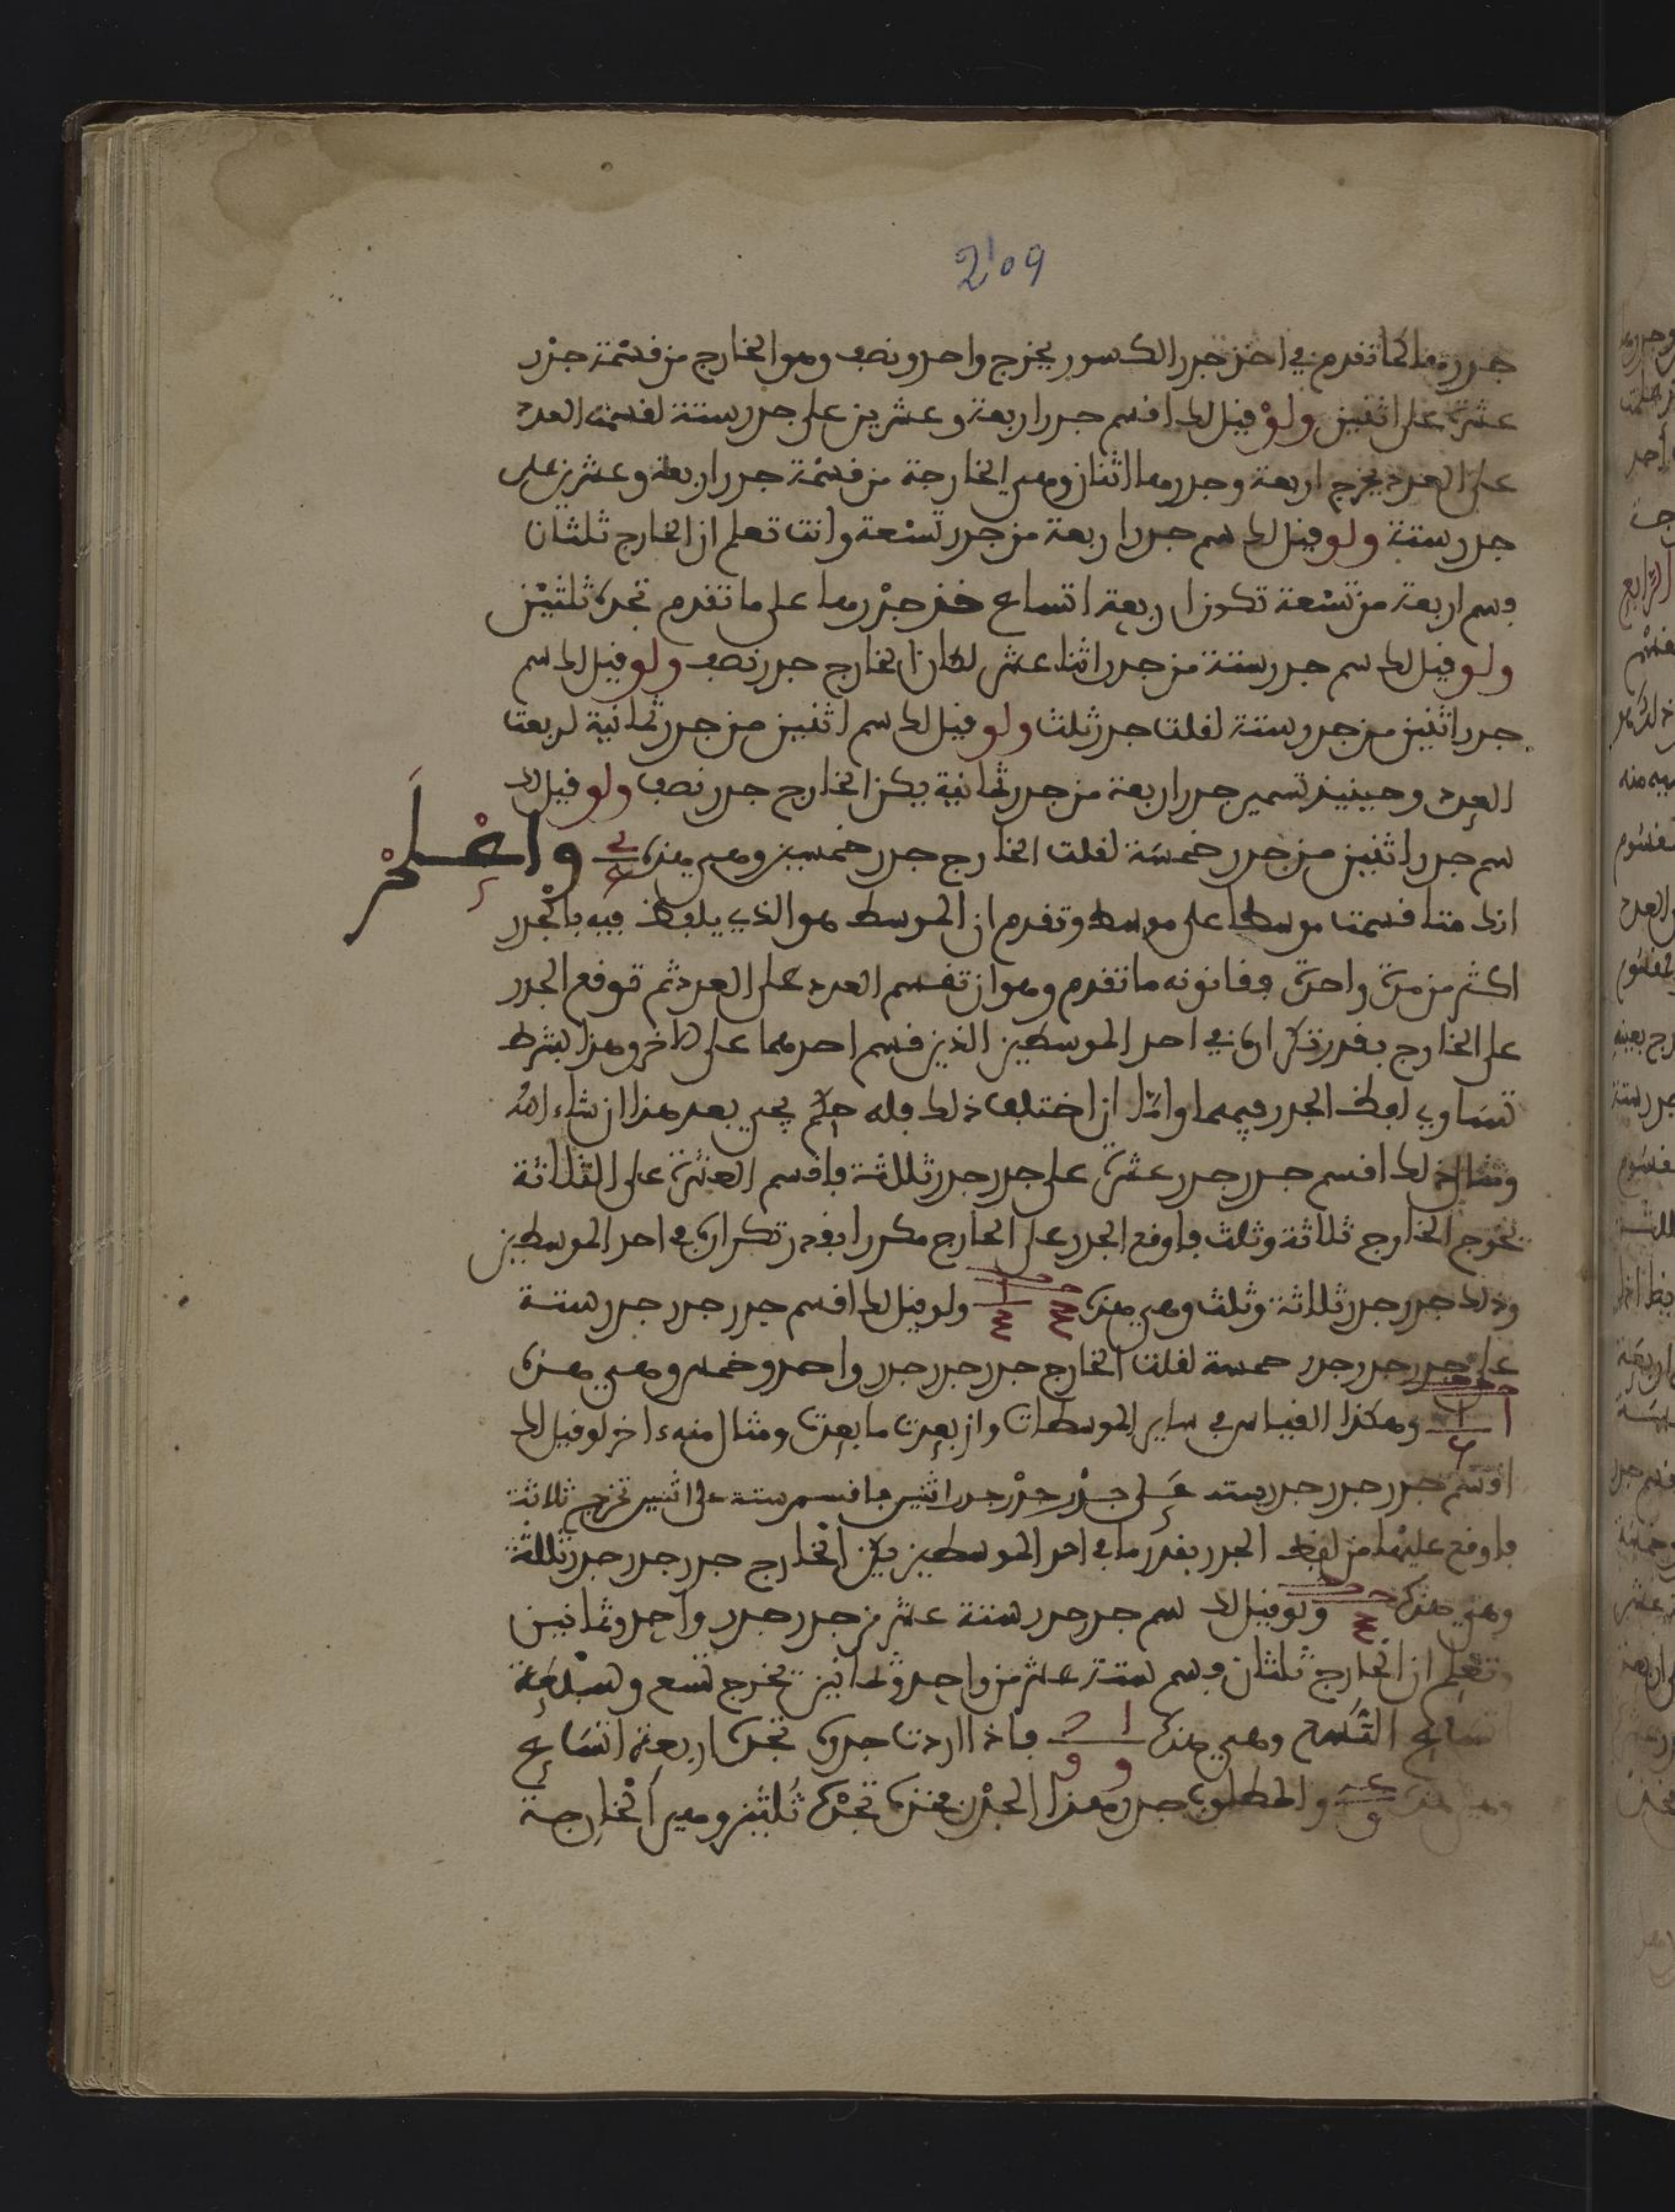 209
جذرها كما تقدم في اخذ جذر الكسور يخرج واحد ونصف وهو الخارج من قسمة جذر
عشرة على اثنين ولو قيل لك اقسم جذر اربعة وعشرين على جذر ستة لقسمت العدد
على العدد يخرج اربعة وجذرها اثنان وهي الخارجة من قسمة جذر اربعة وعشرين على
جذر ستة ولو قيل لك سم جذر اربعة من جذر تسعة وانت تعلم ان الخارج ثلثان
فسم اربعة من تسعة تكون اربعة اتساع فخذ جذرها على ما تقدم تجده ثلثين
ولو قيل لك سم جذر ستة من جذر اثنا عشر لكان الخارج جذر نصف ولو قيل لك سم
جذر اثنين من جذر ستة لقلت جذر ثلث ولو قيل لك سم اثنين من جذر ثمانية لربعت
العدد وحينيذ تسمي جذر اربعة من جذر ثمانية يكن الخارج جذر نصف ولو قيل لك
سم جذر اثنين من جذر خمسة لقلت الخارج جذر خمسين وهي هذه واعلم
انك متا قسمت موسطا على موسط وتقدم ان الموسط هو الذي يلفظ فيه بالجذر
اكثر من مرة واحدة فقانونه ما تقدم وهو ان تقسم العدد على العدد ثم توقع الجذر
على الخارج بقدر تكراره في احد الموسطين الذين قسم احدهما على الاخر وهذا بشرط
تساوي لفظ الجذر فيهما واما ان اختلف ذلك فله حكم يجيء بعد هذا ان شاء الله
ومثال ذلك اقسم جذر جذر عشرة على جذر جذر ثلثة فاقسم العشرة على الثلاثة
يخرج الخارج ثلاثة وثلث فاوقع الجذر على الخارج مكررا بقدر تكراره في احد الموسطين
وذلك جذر جذر ثلاثة وثلث وهي هذه ولو قيل لك اقسم جذر جذر جذر ستة
على جذر جذر جذر خمسة لقلت الخارج جذر جذر جذر واحد وخمس وهي هذه
وهكذا القياس في ساير الموسطات وان بعدت ما بعدت ومثال منه ءاخر لو قيل لك
اقسم جذر جذر جذر ستة على جذر جذر جذر اثنين فاقسم ستة على اثنين تخرج ثلاثة
فاوقع عليها من لفظ الجذر بقدر ما في احد الموسطين يكن الخارج جذر جذر جذر ثلثة
وهي هذه ولو قيل لك سم جذر جذر ستة عشر من جذر جذر واحد وثمانين
وتعلم ان الخارج ثلثان فسم ستة عشر من واحد وثمانين تخرج تسع وسبعة
اتساع التسع وهي هذه فاذا اردت جذره تجده اربعة اتساع
وهي هذه والمطلوب جذر هذا الجذر فخذه تجده ثلثين وهي الخارجة